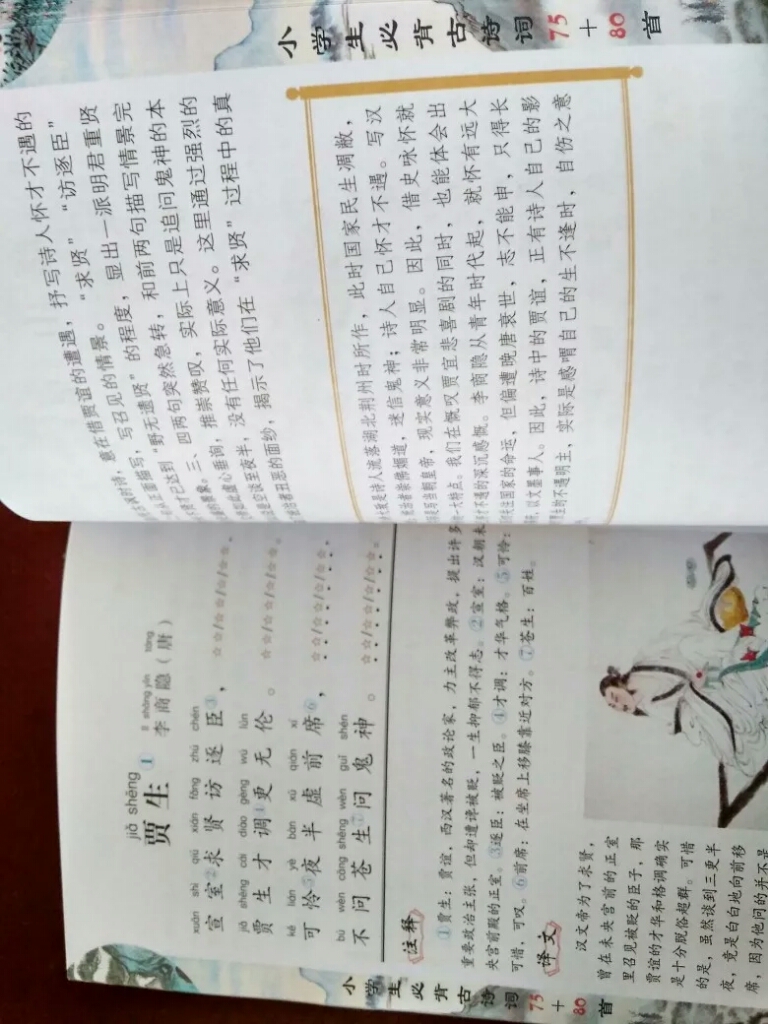 小学生必背古诗词75+80首
jiǎ shēng
贾生①
lǐ shāng yǐn táng
李商隐（唐）
xuān shì qiú xián fǎng zhú chén
宣室②求贤访逐臣③，
jiǎ shēng cái diào gèng wú lún
贾生才调④更无伦。
kě lián yè bàn xū qián xí
可怜⑤夜半虚前席⑥，
bú wèn cāng shēng wèn guǐ shén
不问苍生⑦问鬼神。
注释
①贾生：贾谊，西汉著名的政论家，力主改革弊政，提出许多
重要政治主张，但却遭谗被贬，一生抑郁不得志。②宣室：汉朝未
央宫前殿的正室。③逐臣：被贬之臣。④才调：才华气格。⑤可怜：
可惜，可叹。⑥前席：在坐席上移膝靠近对方。⑦苍生：百姓。
译文
汉文帝为了求贤，
曾在未央宫前的正室
里召见被贬的臣子，那
贾谊的才华和格调确实
是十分脱俗超群。可惜
的是，虽然谈到三更半
夜，竟是白白地向前移
席，因为他问的并不是
小学生必背古诗词75+80首
意在借贾谊的遭遇，抒写诗人怀才不遇的
写召见的情景。“求贤”“访逐臣”
“野无遗贤”的程度，显出一派明君重贤
三、四两句突然急转，和前两句描写情景完
推崇赞叹，实际上只是追问鬼神的本
没有任何实际意义。这里通过强烈的
揭示了他们在“求贤”过程中的真
是诗人流落湖北荆州时所作，此时国家民生凋敝，
迷信鬼神；诗人自己怀才不遇。写汉
现实意义非常明显。因此，借史咏怀就
我们在慨叹贾宜悲喜剧的同时，也能体会出
不遇的深沉感慨。李商隐从青年时代起，就怀有远大
关注国家的命运，但偏遭晚唐衰世，志不能申，只得长
以文墨事人。因此，诗中的贾谊，正有诗人自己的影
不遇明主，实际是感喟自己的生不逢时，自伤之意